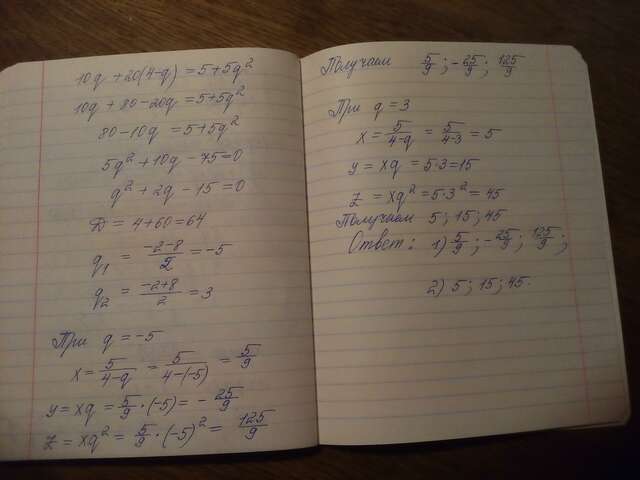 10q + 20(4-q) = 5+5q²
10q + 80-20q = 5+5q²
80-10q = 5+5q²
5q² + 10q - 75 = 0
q² + 2q - 15 = 0
D = 4+60 = 64
q₁ = (-2-8)/2 = -5
q₂ = (-2+8)/2 = 3
При q = -5
x = 5/(4-q) = 5/(4-(-5)) = 5/9
y = xq = 5/9 · (-5) = - 25/9
z = xq² = 5/9 · (-5)² = 125/9
Получаем 5/9 ; -25/9 ; 125/9
При q = 3
x = 5/(4-q) = 5/(4-3) = 5
y = xq = 5·3 = 15
z = xq² = 5·3² = 45
Получаем 5 ; 15 ; 45
Ответ: 1) 5/9 ; -25/9 ; 125/9 ;
2) 5 ; 15 ; 45.